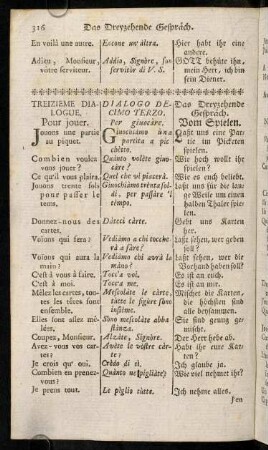 316 Das Dreyzehende Gespräch.
En voilà une autre.
Eccone un'altra.
Hier habt ihr eine andere.
Adieu, Monsieur, votre serviteur.
Addio, Signóre, servitór di V. S.
GOTT behüte ihn, mein Herr, ich bin sein Diener.
TREIZIEME DIALOGUE,
DIALOGO DECIMO TERZO,
Das Dreyzehende Gespräch.
Pour jouer.
Per giuocáre.
Vom Spielen.
Jouons une partie au piquet.
Giuochiámo una partita a picchétto.
Laßt uns eine Partie im Picketen spielen.
Combien voulez vous jouer?
Quánto voléte giuocáre?
Wie hoch wollt ihr spielen?
Ce qu'il vous plaira.
Quel che vi piacerà.
Wie es euch beliebt.
Jouons trente sols pour passer le tems,
Giuochiámo trénta soldi, per passáre il tempo.
Laßt uns für die lange Weile um einen halben Thaler spielen.
Donnez-nous des cartes.
Dáteci cárte.
Gebt uns Karten her.
Voïons qui fera?
Vediámo a chi toccherà a fáre?
Laßt sehen, wer geben soll?
Voïons qui aura la main?
Vediámo chi avrà la máno?
Laßt sehen, wer die Vorhand haben soll?
C'est à vous à faire.
Tocca voi.
Es ist an euch.
C'est à moi.
Tocca me.
Es ist an mir.
Mêlez les cartes, toutes les têtes sont ensemble.
Mescoláte le cárte, tutte le figúre sono insiéme.
Mischet die Karten, die höchsten sind alle beysammen.
Elles sont assez mêlées.
Sono mescoláte abbastánza.
Sie sind genug gemischt.
Coupez, Monsieur.
Alzáte, Signóre.
Der Herr hebe ab.
Avez-vous vos cartes?
Avéte le vóstre cárte?
Habt ihr eure Karten?
Je crois qu' oui.
Crédo di sì.
Ich glaube ja.
Combien en prenez-vous?
Quánte ne pigliáte?
Wie viel nehmet ihr?
Je prens tout.
Le piglio tutte.
Ich nehme alles.